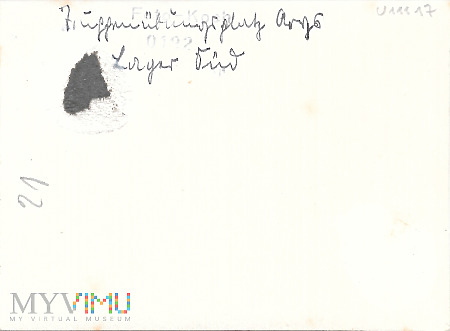 Truppenübungsplatz Arys
Lager Süd
U11117
21
MYVIMU
MY VIRTUAL MUSEUM